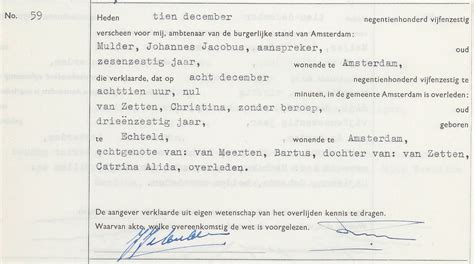 No. 59 Heden tien december negentienhonderd vijfenzestig
verscheen voor mij, ambtenaar van de burgerlijke stand van Amsterdam:
Mulder, Johannes Jacobus, aanspreker, oud
zesenzestig jaar, wonende te Amsterdam,
die verklaarde, dat op acht december negentienhonderd vijfenzestig te
achttien uur, nul minuten, in de gemeente Amsterdam is overleden:
van Zetten, Christina, zonder beroep, oud
drieënzestig jaar, geboren
te Echteld, wonende te Amsterdam,
echtgenote van: van Meerten, Bartus, dochter van: van Zetten,
Catrina Alida, overleden.
De aangever verklaarde uit eigen wetenschap van het overlijden kennis te dragen.
Waarvan akte, welke overeenkomstig de wet is voorgelezen.